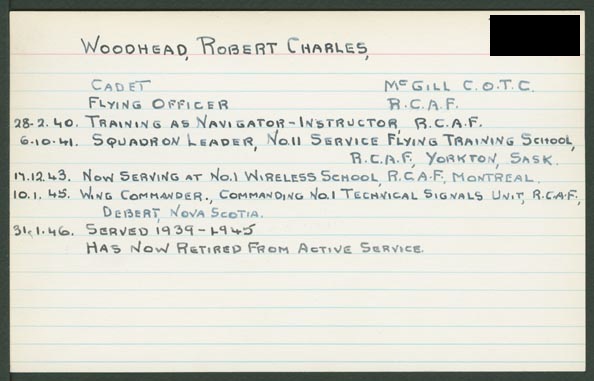 WOODHEAD, ROBERT CHARLES,
CADET McGILL C.O.T.C.
FLYING OFFICER R.C.A.F.
28-2.40. TRAINING AS NAVIGATOR-INSTRUCTOR, R.C.A.F.
6.10.41. SQUADRON LEADER, NO.11 SERVICE FLYING TRAINING SCHOOL,
R.C.A.F., YORKTON, SASK.
17.12.43. NOW SERVING AT NO.1 WIRELESS SCHOOL, R.C.A.F., MONTREAL.
10.1.45. WING COMMANDER., COMMANDING NO.1 TECHNICAL SIGNALS UNIT, R.C.A.F.,
DEBERT, NOVA SCOTIA.
31.1.46. SERVED 1939-1945
HAS NOW RETIRED FROM ACTIVE SERVICE.